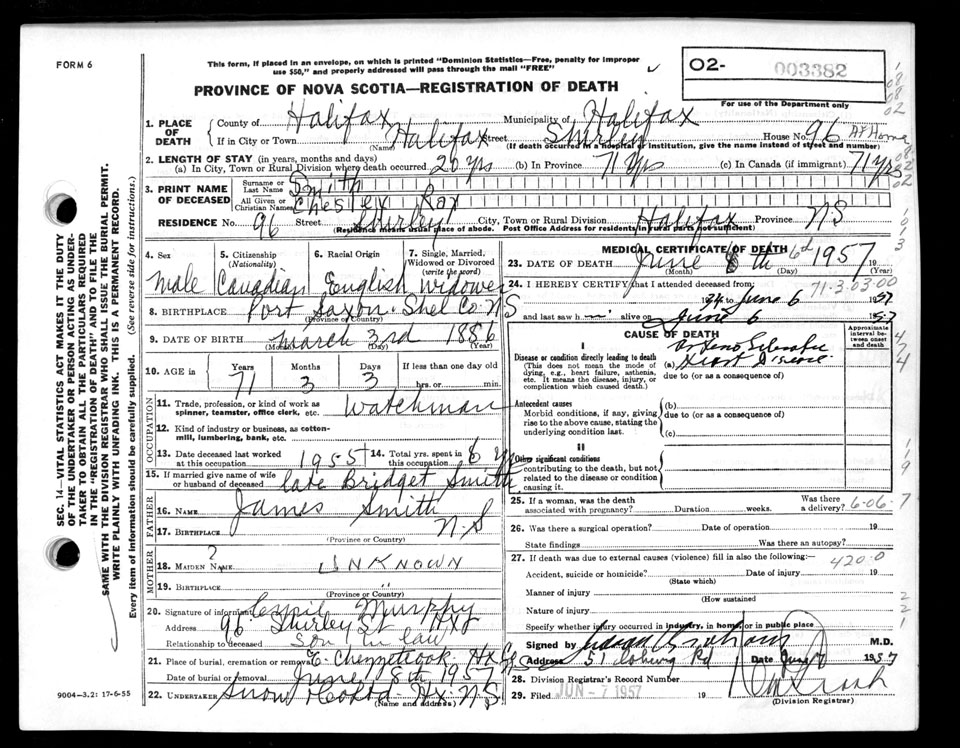 FORM 6
This form, if placed in an envelope, on which is printed "Dominion Statistics—Free, penalty for improper
use $50," and properly addressed will pass through the mail "FREE"
O2- 003382
For use of the Department only
PROVINCE OF NOVA SCOTIA—REGISTRATION OF DEATH
1. PLACE OF DEATH
County of Halifax Municipality of Halifax
If in City or Town Halifax Street Shirley House No. 96 At Home
(Name) (If death occurred in a hospital or institution, give the name instead of street and number)
2. LENGTH OF STAY (in years, months and days)
(a) In City, Town or Rural Division where death occurred 20 yrs (b) In Province 71 yrs (c) In Canada (if immigrant) 71 yrs
3. PRINT NAME OF DECEASED
Surname or Last Name Smith
All Given or Christian Names Chester Ray
RESIDENCE No. 96 Street Shirley City, Town or Rural Division Halifax Province N.S
(Residence means usual place of abode. Post Office Address for residents in rural parts not sufficient)
4. Sex 5. Citizenship (Nationality) 6. Racial Origin 7. Single, Married, Widowed or Divorced (write the word)
Male Canadian English Widower
8. BIRTHPLACE Port Saxon Shel Co. N S
(Province or Country)
9. DATE OF BIRTH March 3rd 1886
(Month) (Day) (Year)
10. AGE in Years Months Days If less than one day old
71 3 3 hrs. or min.
OCCUPATION
11. Trade, profession or kind of work as spinner, teamster, office clerk, etc. Watchman
12. Kind of industry or business, as cotton-mill, lumbering, bank, etc.
13. Date deceased last worked at this occupation 1955 14. Total yrs. spent in this occupation 6 yrs
15. If married give name of wife or husband of deceased late Bridget Smith
FATHER
16. NAME James Smith
17. BIRTHPLACE N-S
(Province or Country)
MOTHER
18. MAIDEN NAME ? UNKNOWN
19. BIRTHPLACE "
(Province or Country)
20. Signature of informant Murphy
Address 96 Shirley St Hx
Relationship to deceased Son in law
21. Place of burial, cremation or removal E. Chezzetcook Hx
Date of burial or removal June 8th 1957
22. UNDERTAKER Snow & Co Ltd Hx N S
(Name and address)
MEDICAL CERTIFICATE OF DEATH
23. DATE OF DEATH June 6th 1957 19
(Month) (Day) (Year)
24. I HEREBY CERTIFY that I attended deceased from:
71-3.03.00
to June 6 1957
and last saw h im alive on June 6 1957
CAUSE OF DEATH
Approximate interval between onset and death
I
Disease or condition directly leading to death
(This does not mean the mode of dying, e.g., heart failure, asthenia, etc. It means the disease, injury, or complication which caused death.)
(a) Heart Disease
due to (or as a consequence of)
Antecedent causes
Morbid conditions, if any, giving rise to the above cause, stating the underlying condition last.
(b)
due to (or as a consequence of)
(c)
II
Other significant conditions
contributing to the death, but not related to the disease or condition causing it.
25. If a woman, was the death associated with pregnancy? Duration weeks. Was there a delivery? 6-06-7
26. Was there a surgical operation? Date of operation 19
State findings Was there an autopsy?
27. If death was due to external causes (violence) fill in also the following: 420-0
Accident, suicide or homicide? Date of injury 19
(State which)
Manner of injury
(How sustained
Nature of injury
Specify whether injury occurred in industry, in home, or in public place
Signed by M.D.
Address 51 Coburg Rd Date June 7 1957
28. Division Registrar's Record Number
29. Filed JUN - 7 1957 19
(Division Registrar)
9004—3.2: 17-6-55
SEC. 14—VITAL STATISTICS ACT MAKES IT THE DUTY
OF THE UNDERTAKER OR PERSON ACTING AS UNDER-
TAKER TO OBTAIN ALL THE PARTICULARS REQUIRED
IN THE "REGISTRATION OF DEATH" AND TO FILE THE
SAME WITH THE DIVISION REGISTRAR WHO SHALL ISSUE THE BURIAL PERMIT.
WRITE PLAINLY WITH UNFADING INK. THIS IS A PERMANENT RECORD.
Every item of information should be carefully supplied. (See reverse side for instructions.)